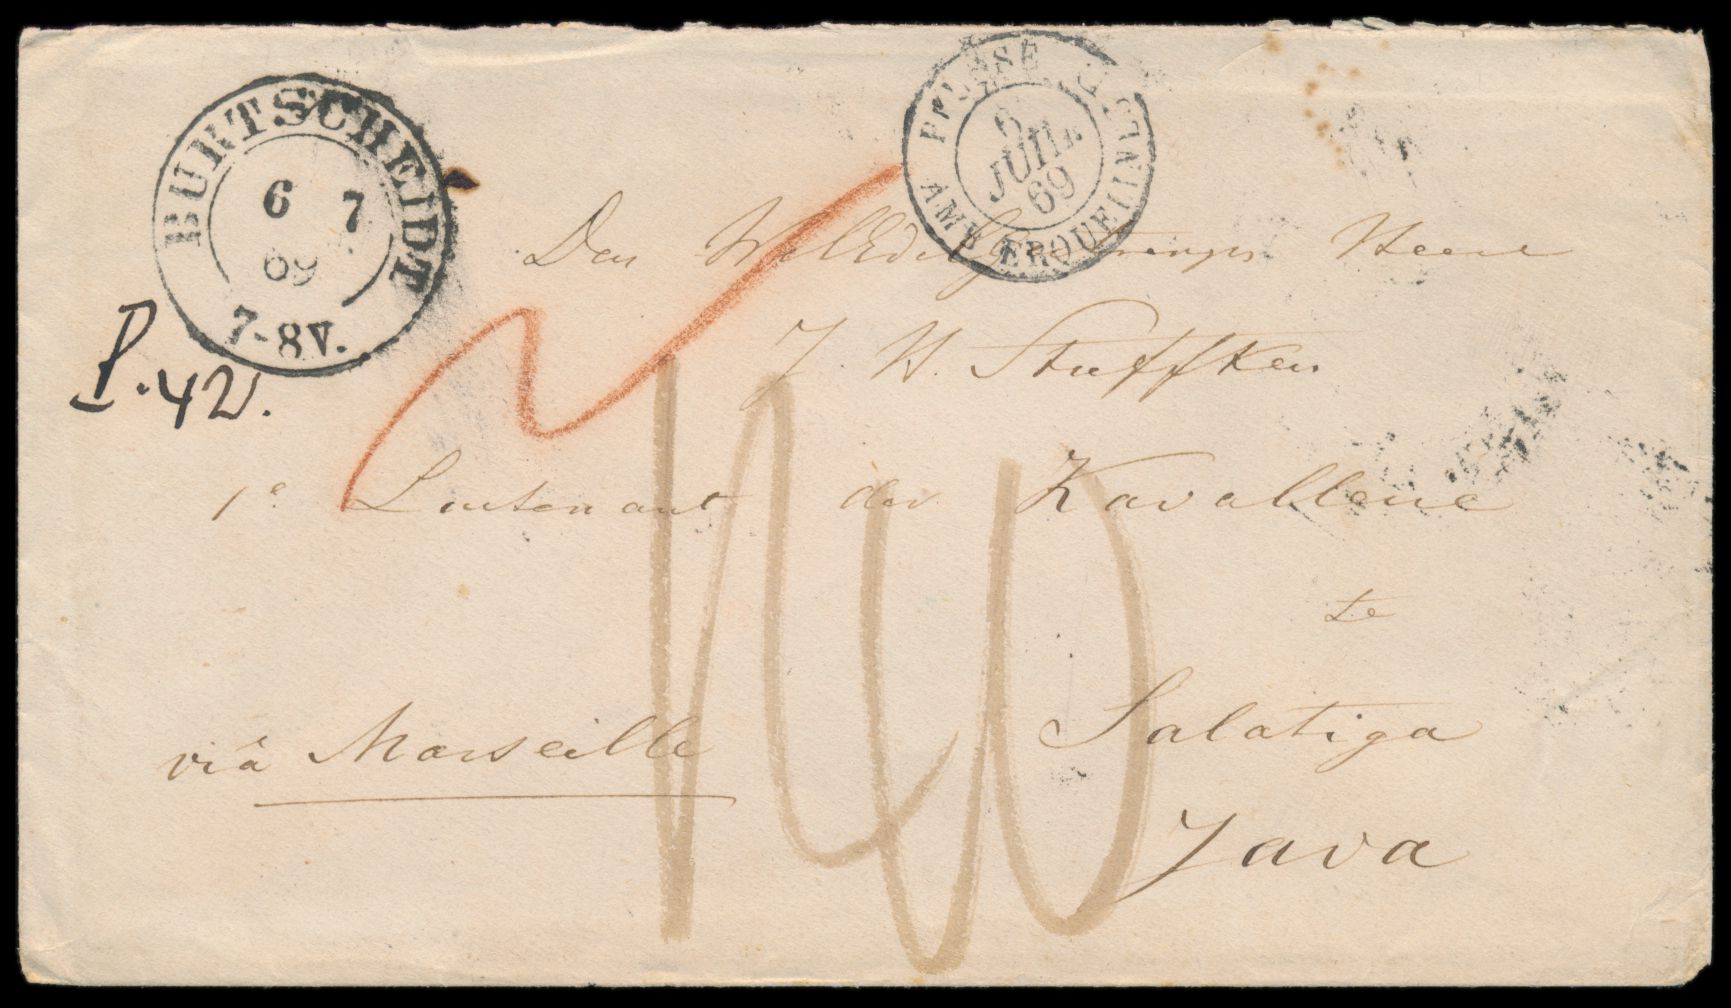 BURTSCHEIDT
6 7
69
7-8V.
PRUSSE
6
JUIL.
69
AMB ERQUEILINES
P.42.
Den WelEdelGestrengen Heere
J. H. Stuffken
1e Luitenant der Kavallerie
te
viâ Marseille
Salatiga
Java
140